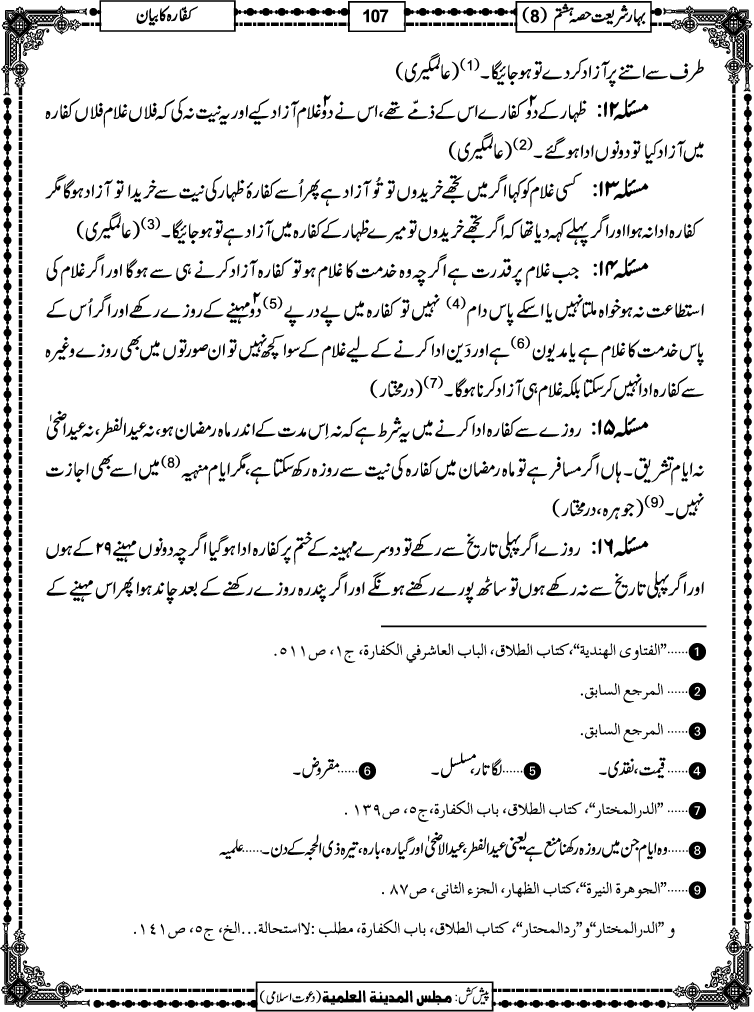 بہار شریعت حصہ ہشتم (8)
107
کفارہ کا بیان
طرف سے اتنے پر آزاد کر دے تو ہو جائیگا۔(1) (عالمگیری)
مسئلہ ۱۲: ظہار کے دو۲ کفارے اس کے ذمّے تھے، اس نے دو۲ غلام آزاد کیے اور یہ نیت نہ کی کہ فلاں غلام فلاں کفارہ
میں آزاد کیا تو دونوں ادا ہو گئے۔(2) (عالمگیری)
مسئلہ ۱۳: کسی غلام کو کہا اگر میں تجھے خریدوں تو تُو آزاد ہے پھر اُسے کفارۂ ظہار کی نیت سے خریدا تو آزاد ہوگا مگر
کفارہ ادا نہ ہوا اور اگر پہلے کہہ دیا تھا کہ اگر تجھے خریدوں تو میرے ظہار کے کفارہ میں آزاد ہے تو ہو جائیگا۔(3) (عالمگیری)
مسئلہ ۱۴: جب غلام پر قدرت ہے اگرچہ وہ خدمت کا غلام ہو تو کفارہ آزاد کرنے ہی سے ہوگا اور اگر غلام کی
استطاعت نہ ہو خواہ ملتا نہیں یا اسکے پاس دام(4) نہیں تو کفارہ میں پے در پے(5) دو۲ مہینے کے روزے رکھے اور اگر اُس کے
پاس خدمت کا غلام ہے یا مدیون(6) ہے اور دَین ادا کرنے کے لیے غلام کے سوا کچھ نہیں تو ان صورتوں میں بھی روزے وغیرہ
سے کفارہ ادا نہیں کر سکتا بلکہ غلام ہی آزاد کرنا ہوگا۔(7) (درمختار)
مسئلہ ۱۵: روزے سے کفارہ ادا کرنے میں یہ شرط ہے کہ نہ اِس مدت کے اندر ماہ رمضان ہو، نہ عید الفطر، نہ عید اضحیٰ
نہ ایام تشریق۔ ہاں اگر مسافر ہے تو ماہ رمضان میں کفارہ کی نیت سے روزہ رکھ سکتا ہے، مگر ایام منہیہ(8) میں اسے بھی اجازت
نہیں۔(9) (جوہرہ، درمختار)
مسئلہ ۱۶: روزے اگر پہلی تاریخ سے رکھے تو دوسرے مہینہ کے ختم پر کفارہ ادا ہو گیا اگرچہ دونوں مہینے ۲۹ کے ہوں
اور اگر پہلی تاریخ سے نہ رکھے ہوں تو ساٹھ پورے رکھنے ہونگے اور اگر پندرہ روزے رکھنے کے بعد چاند ہوا پھر اس مہینے کے
1......"الفتاوی الهندیة"، کتاب الطلاق، الباب العاشر فی الکفارة، ج۱، ص۵۱۱.
2...... المرجع السابق.
3...... المرجع السابق.
4...... قیمت، نقدی۔ 5...... لگاتار، مسلسل۔ 6...... مقروض۔
7...... "الدرالمختار"، کتاب الطلاق، باب الکفارة، ج۵، ص۱۳۹.
8...... وہ ایام جن میں روزہ رکھنا منع ہے یعنی عید الفطر، عید الاضحیٰ اور گیارہ، بارہ، تیرہ ذی الحجہ کے دن۔.....علمیہ
9......"الجوهرة النیرة"، کتاب الظهار، الجزء الثانی، ص۸۷.
و "الدرالمختار" و "ردالمحتار"، کتاب الطلاق، باب الکفارة، مطلب: لااستحالة...الخ، ج۵، ص۱۴۱.
پیش کش: مجلس المدینة العلمیة (دعوت اسلامی)